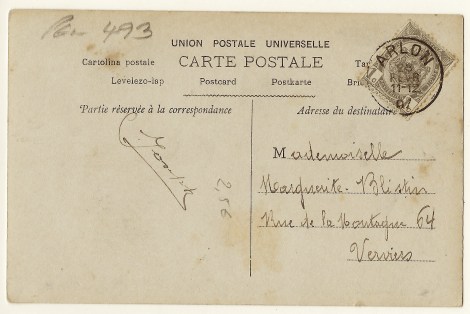 Pan 493
UNION POSTALE UNIVERSELLE
Cartolina postale CARTE POSTALE
Levelezo-lap Postcard Postkarte
Partie réservée à la correspondance
Adresse du destinataire
ARLON
FEVR
11-12
07
Mademoiselle
Marguerite Blistin
Rue de la Montagne 64
Verviers
2,56